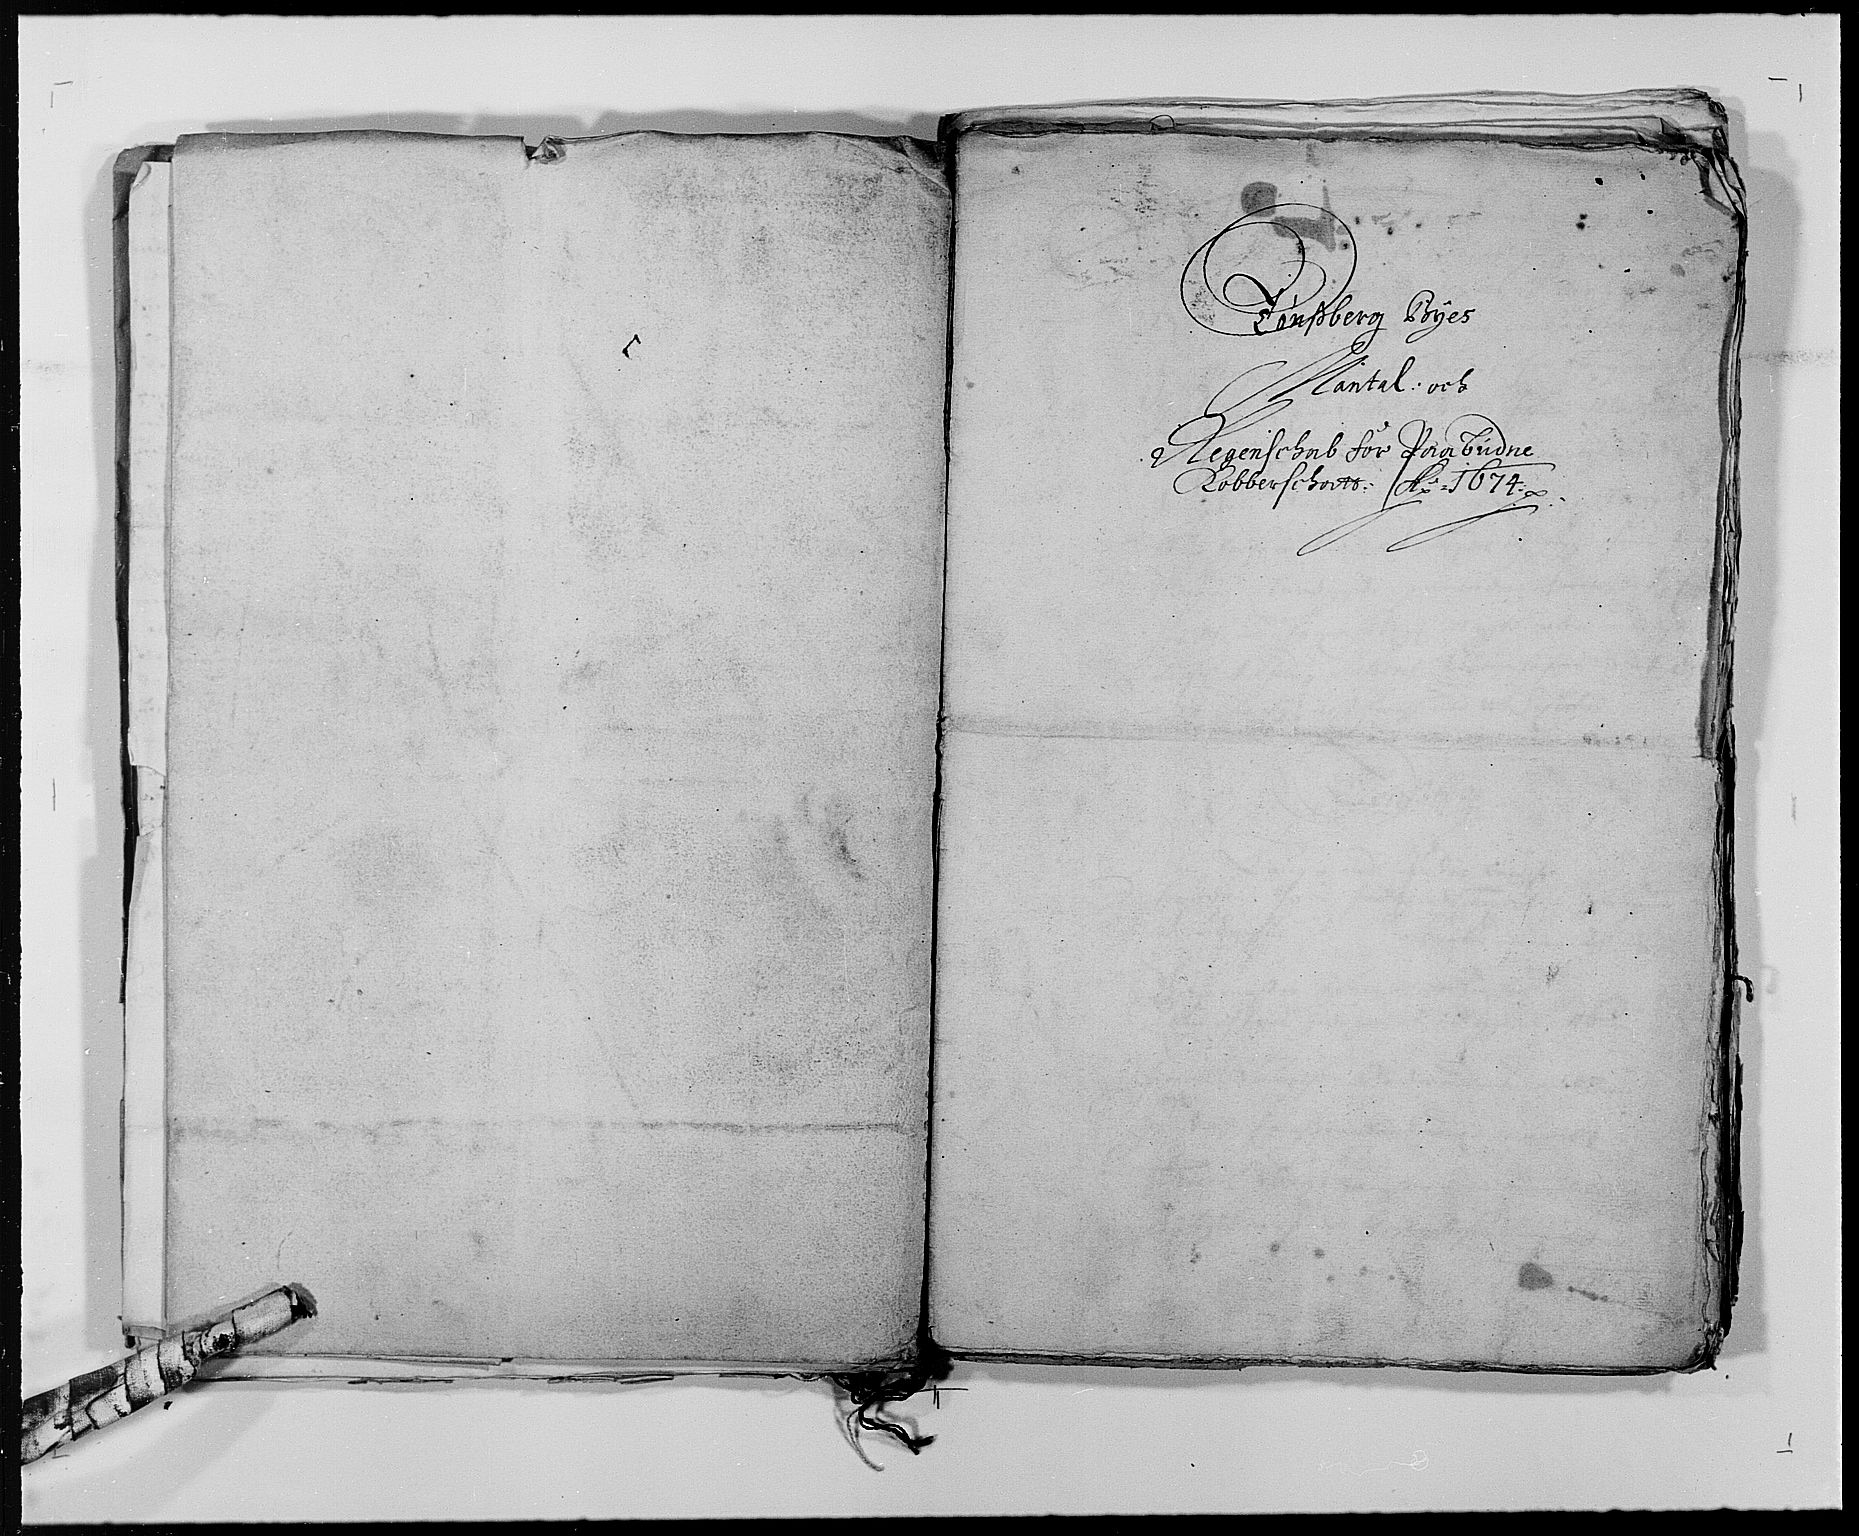 Tønßberg Byes
Mantal: och
Regenschab for Paabudne
Kobberschatt: Ao: 1674: